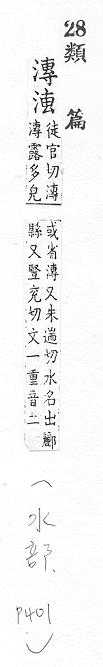 28類篇
漙
徒官切漙
漙露多皃
或省漙又朱遄切水名出酈
縣又豎兖切文一重音二
（水部，
P401）